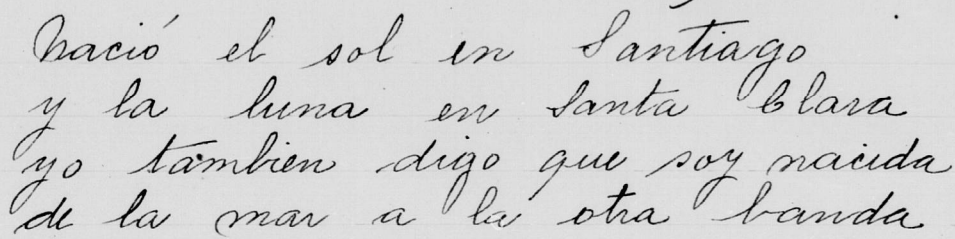 Nació el sol en Santiago
y la luna en Santa Clara
yo tambien digo que soy nacida
de la mar a la otra banda